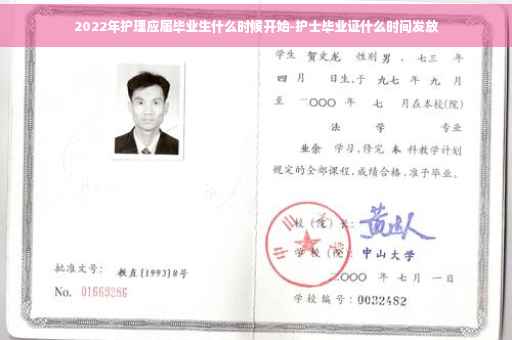 2022年护理应届毕业生什么时候开始-护士毕业证什么时间发放
学生 贺文龙 性别 男 、七三 年
四 月 日生,于 九七 年 九 月
至 二〇〇〇 年 七 月在本校(院)
法 学 专业
业余 学习,修完 本 科教学计划
规定的全部课程,成绩合格,准予毕业。
校(院)长:
学校(院): 中山大学
二〇〇〇 年 七 月 一 日
学校编号: 0032482
批准文号: 教直[1993]8号
No. 01669286